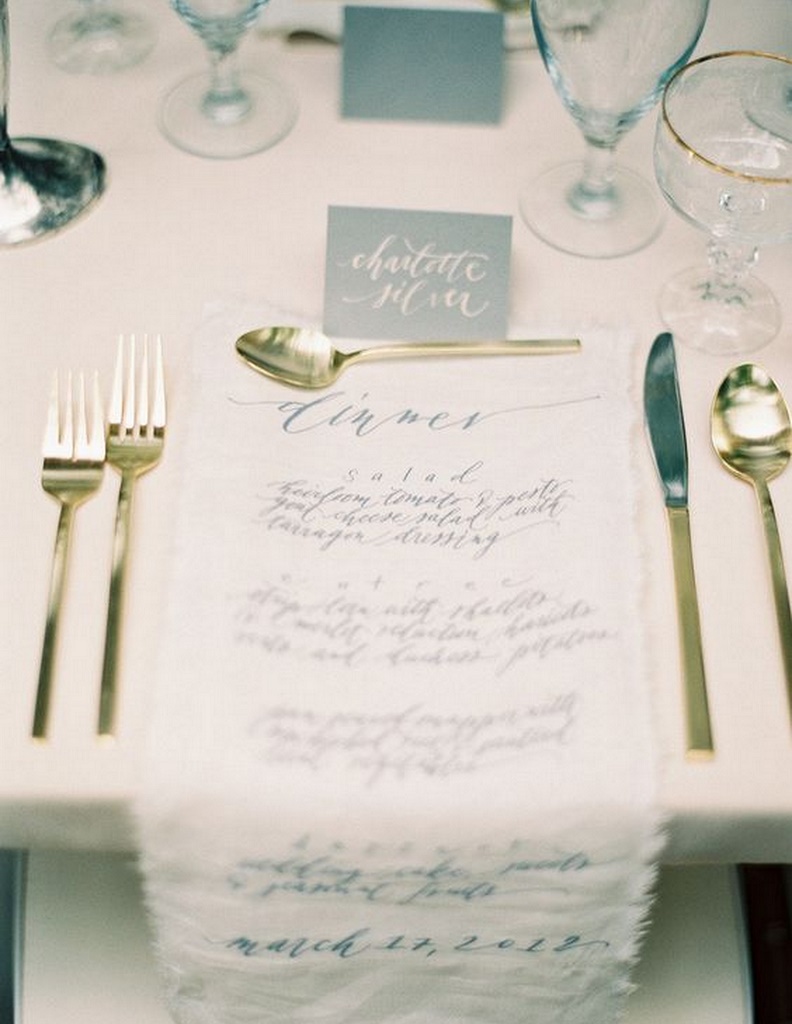 charlotte
silver
dinner
salad
heirloom tomato & pesto
goat cheese salad with
tarragon dressing
entree
strip loin with shallots
merlot reduction, haricots
verts and duchess potatoes
pan roasted snapper with
and
vegetables
dessert
wedding cake, sweets
& seasonal fruits
march 17, 2012